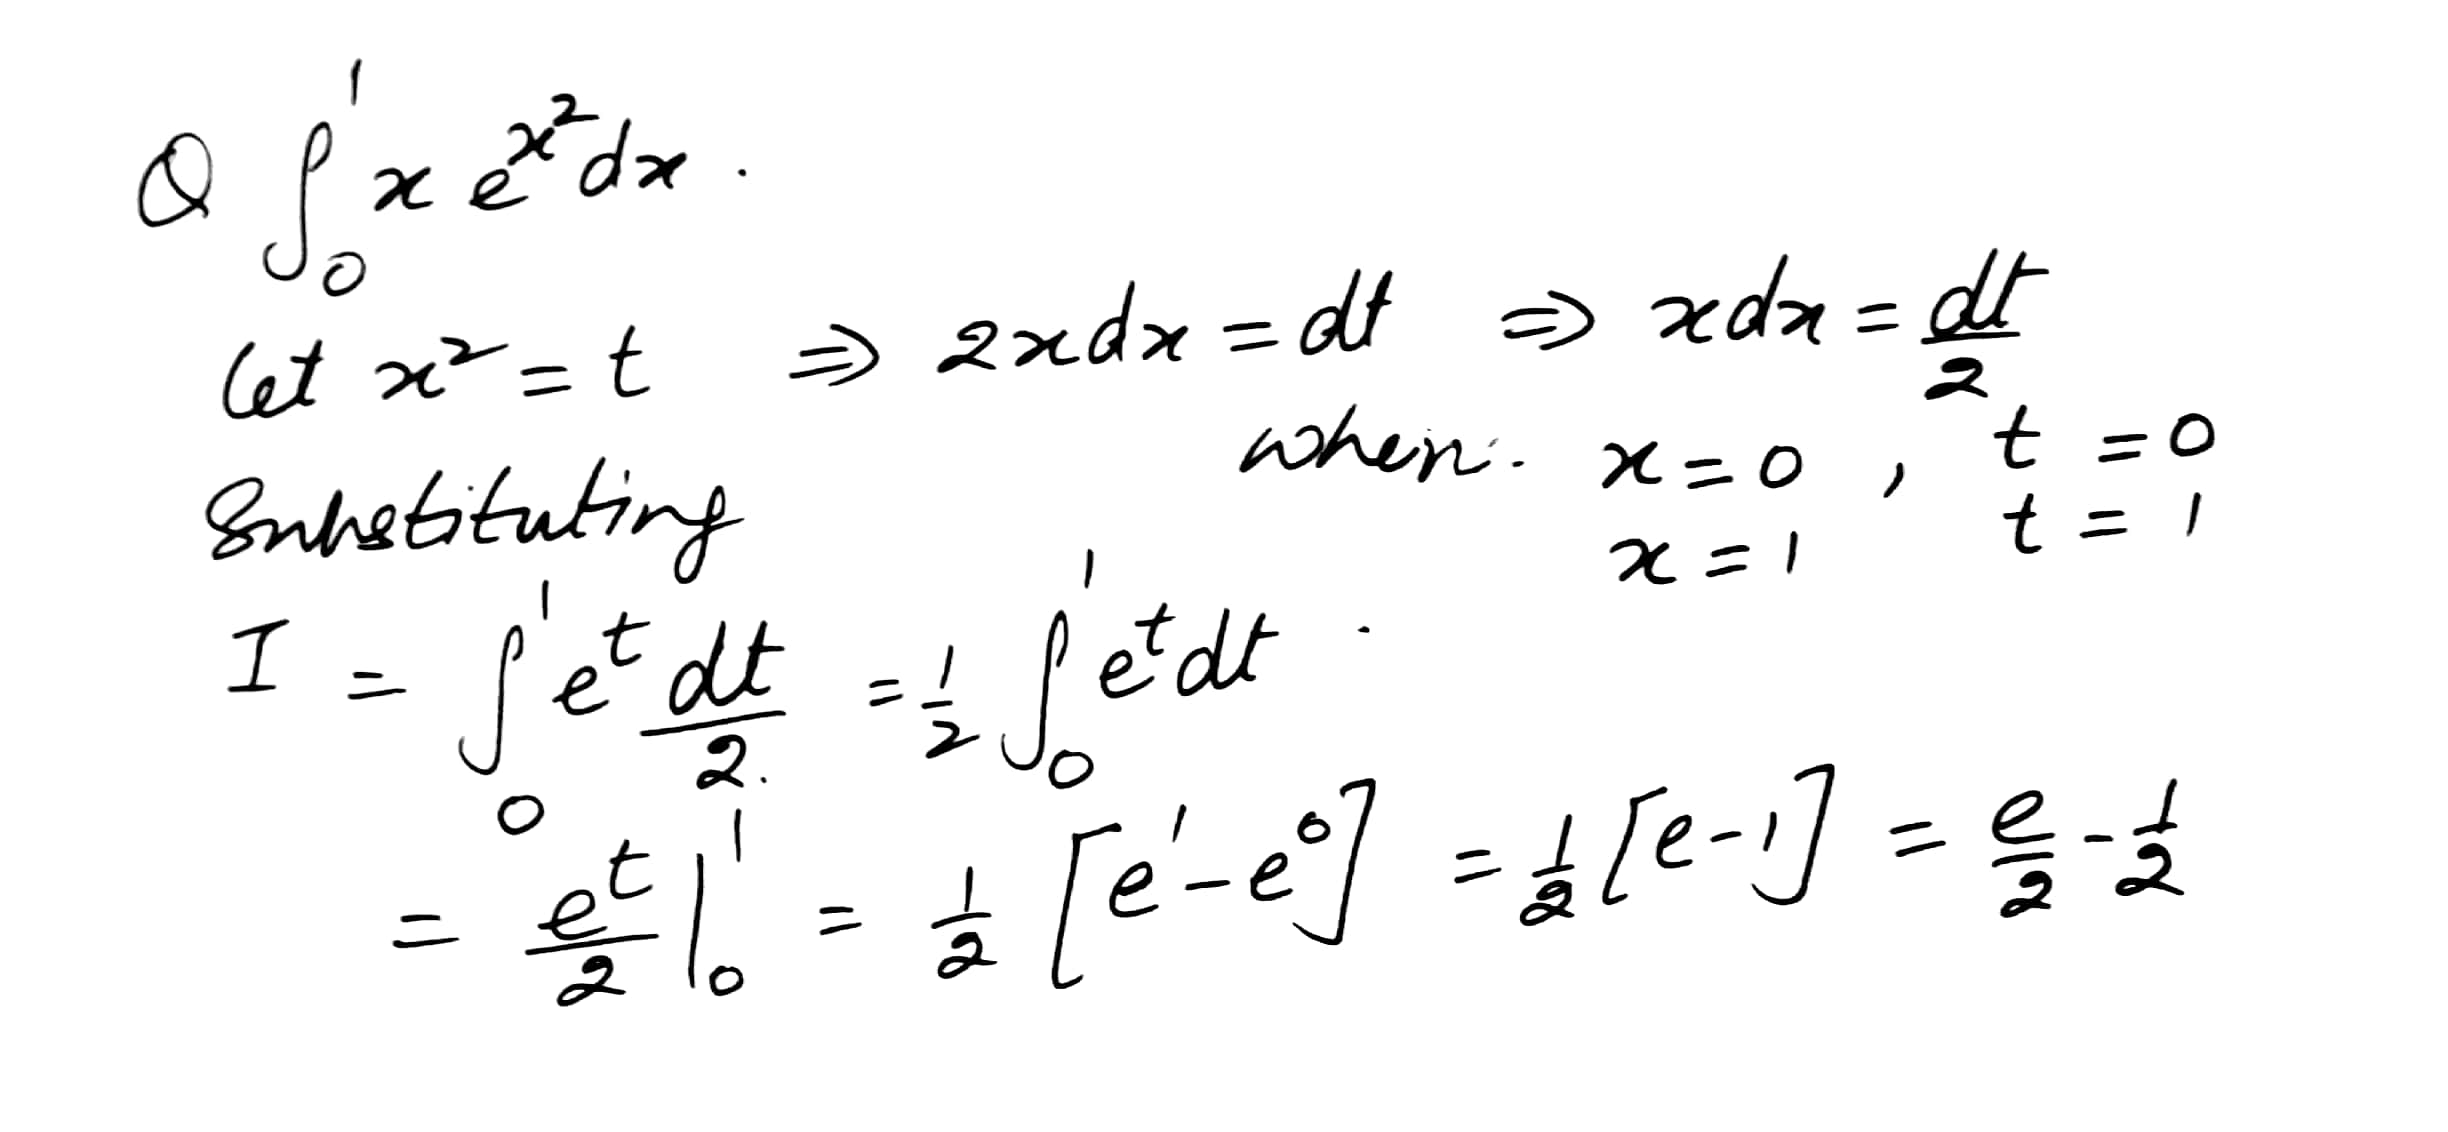 Q ∫₀¹ x e^{x²} dx .
let x² = t ⇒ 2xdx = dt ⇒ xdx = dt/2
when:- x = 0 , t = 0
Substituting x = 1 t = 1
I = ∫₀¹ e^t dt/2. = 1/2 ∫₀¹ e^t dt .
= e^t/2 |₀¹ = 1/2 [e¹ - e⁰] = 1/2 [e - 1] = e/2 - 1/2